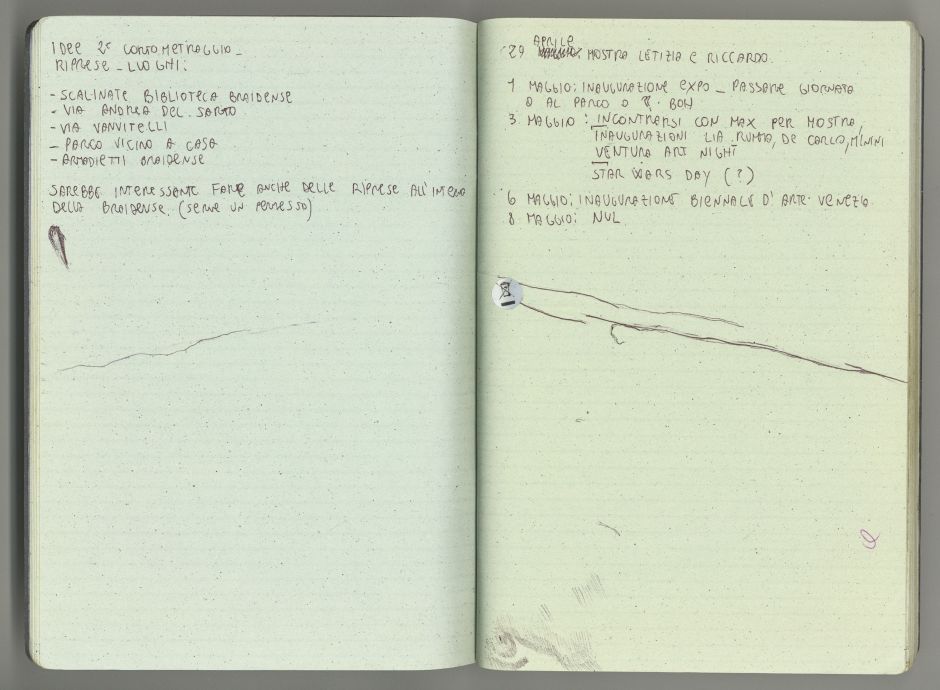 IDEE 2° CORTOMETRAGGIO_
RIPRESE _ LUOGHI:
- SCALINATE BIBLIOTECA BRAIDENSE
- VIA ANDREA DEL SARTO
- VIA VANVITELLI
- PARCO VICINO A CASA
- ARMADIETTI BRAIDENSE
SAREBBE INTERESSANTE FARE ANCHE DELLE RIPRESE ALL'INTERNO
DELLA BRAIDENSE. (SERVE UN PERMESSO)
APRILE
29 MOSTRA LETIZIA E RICCARDO.
1 MAGGIO: INAUGURAZIONE EXPO _ PASSARE GIORNATA
O AL PARCO O BOH
3 MAGGIO: INCONTRARSI CON MAX PER MOSTRA,
INAUGURAZIONI LIA RUMMA, DE CARLO, MININI
VENTURA ART NIGHT
STAR WARS DAY (?)
6 MAGGIO: INAUGURAZIONE BIENNALE D'ARTE VENEZIA.
8 MAGGIO: NUL